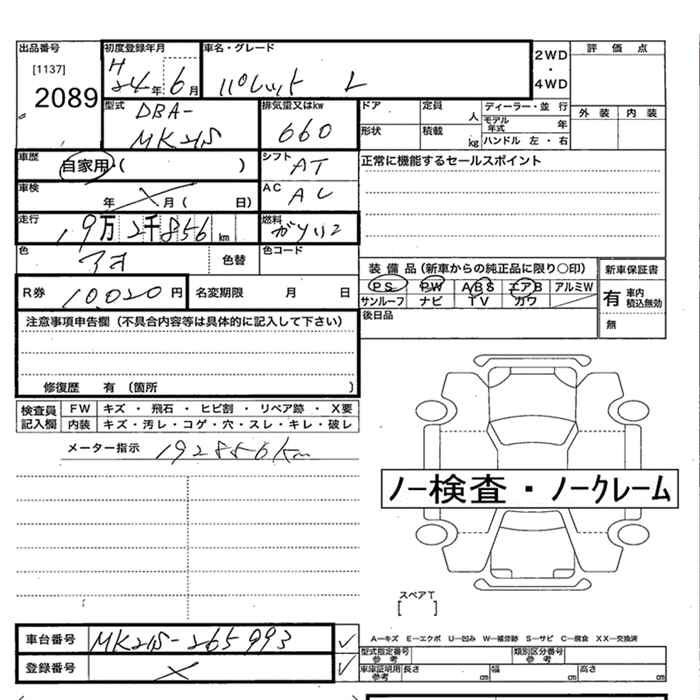 出品番号 初度登録年月 車名・グレード 2WD・4WD 評価点
[1137]
2089
H24年6月 パレット L
型式 排気量又はkw ドア 定員 人 ディーラー・並行 外装 内装
DBA-
MK21S 660 形状 積載 kg モデル年式 年
ハンドル 左・右
車歴 自家用・( ) シフト AT 正常に機能するセールスポイント
車検 年 月( 日) AC AC
走行 19万2千856km 燃料 ガソリン
色 アオ 色替 色コード
装備品(新車からの純正品に限り○印) 新車保証書
R券 10020円 名変期限 月 日 PS PW ABS エアB アルミW 有 車内積込無効
サンルーフ ナビ TV カワ
注意事項申告欄(不具合内容等は具体的に記入して下さい) 後日品 無
修復歴 有(箇所 )
検査員記入欄 FW キズ・飛石・ヒビ割・リペア跡・X要
内装 キズ・汚レ・コゲ・穴・スレ・キレ・破レ
メーター指示 192856km
ノー検査・ノークレーム
スペアT
[ ]
車台番号 MK21S-265993 ✓
A―キズ E―エクボ U―凹み W―補修跡 S―サビ C―腐食 XX―交換済
型式指定番号 参考 類別区分番号 参考
登録番号 × ✓ 車庫証明用 参考 長さ cm 幅 cm 高さ cm